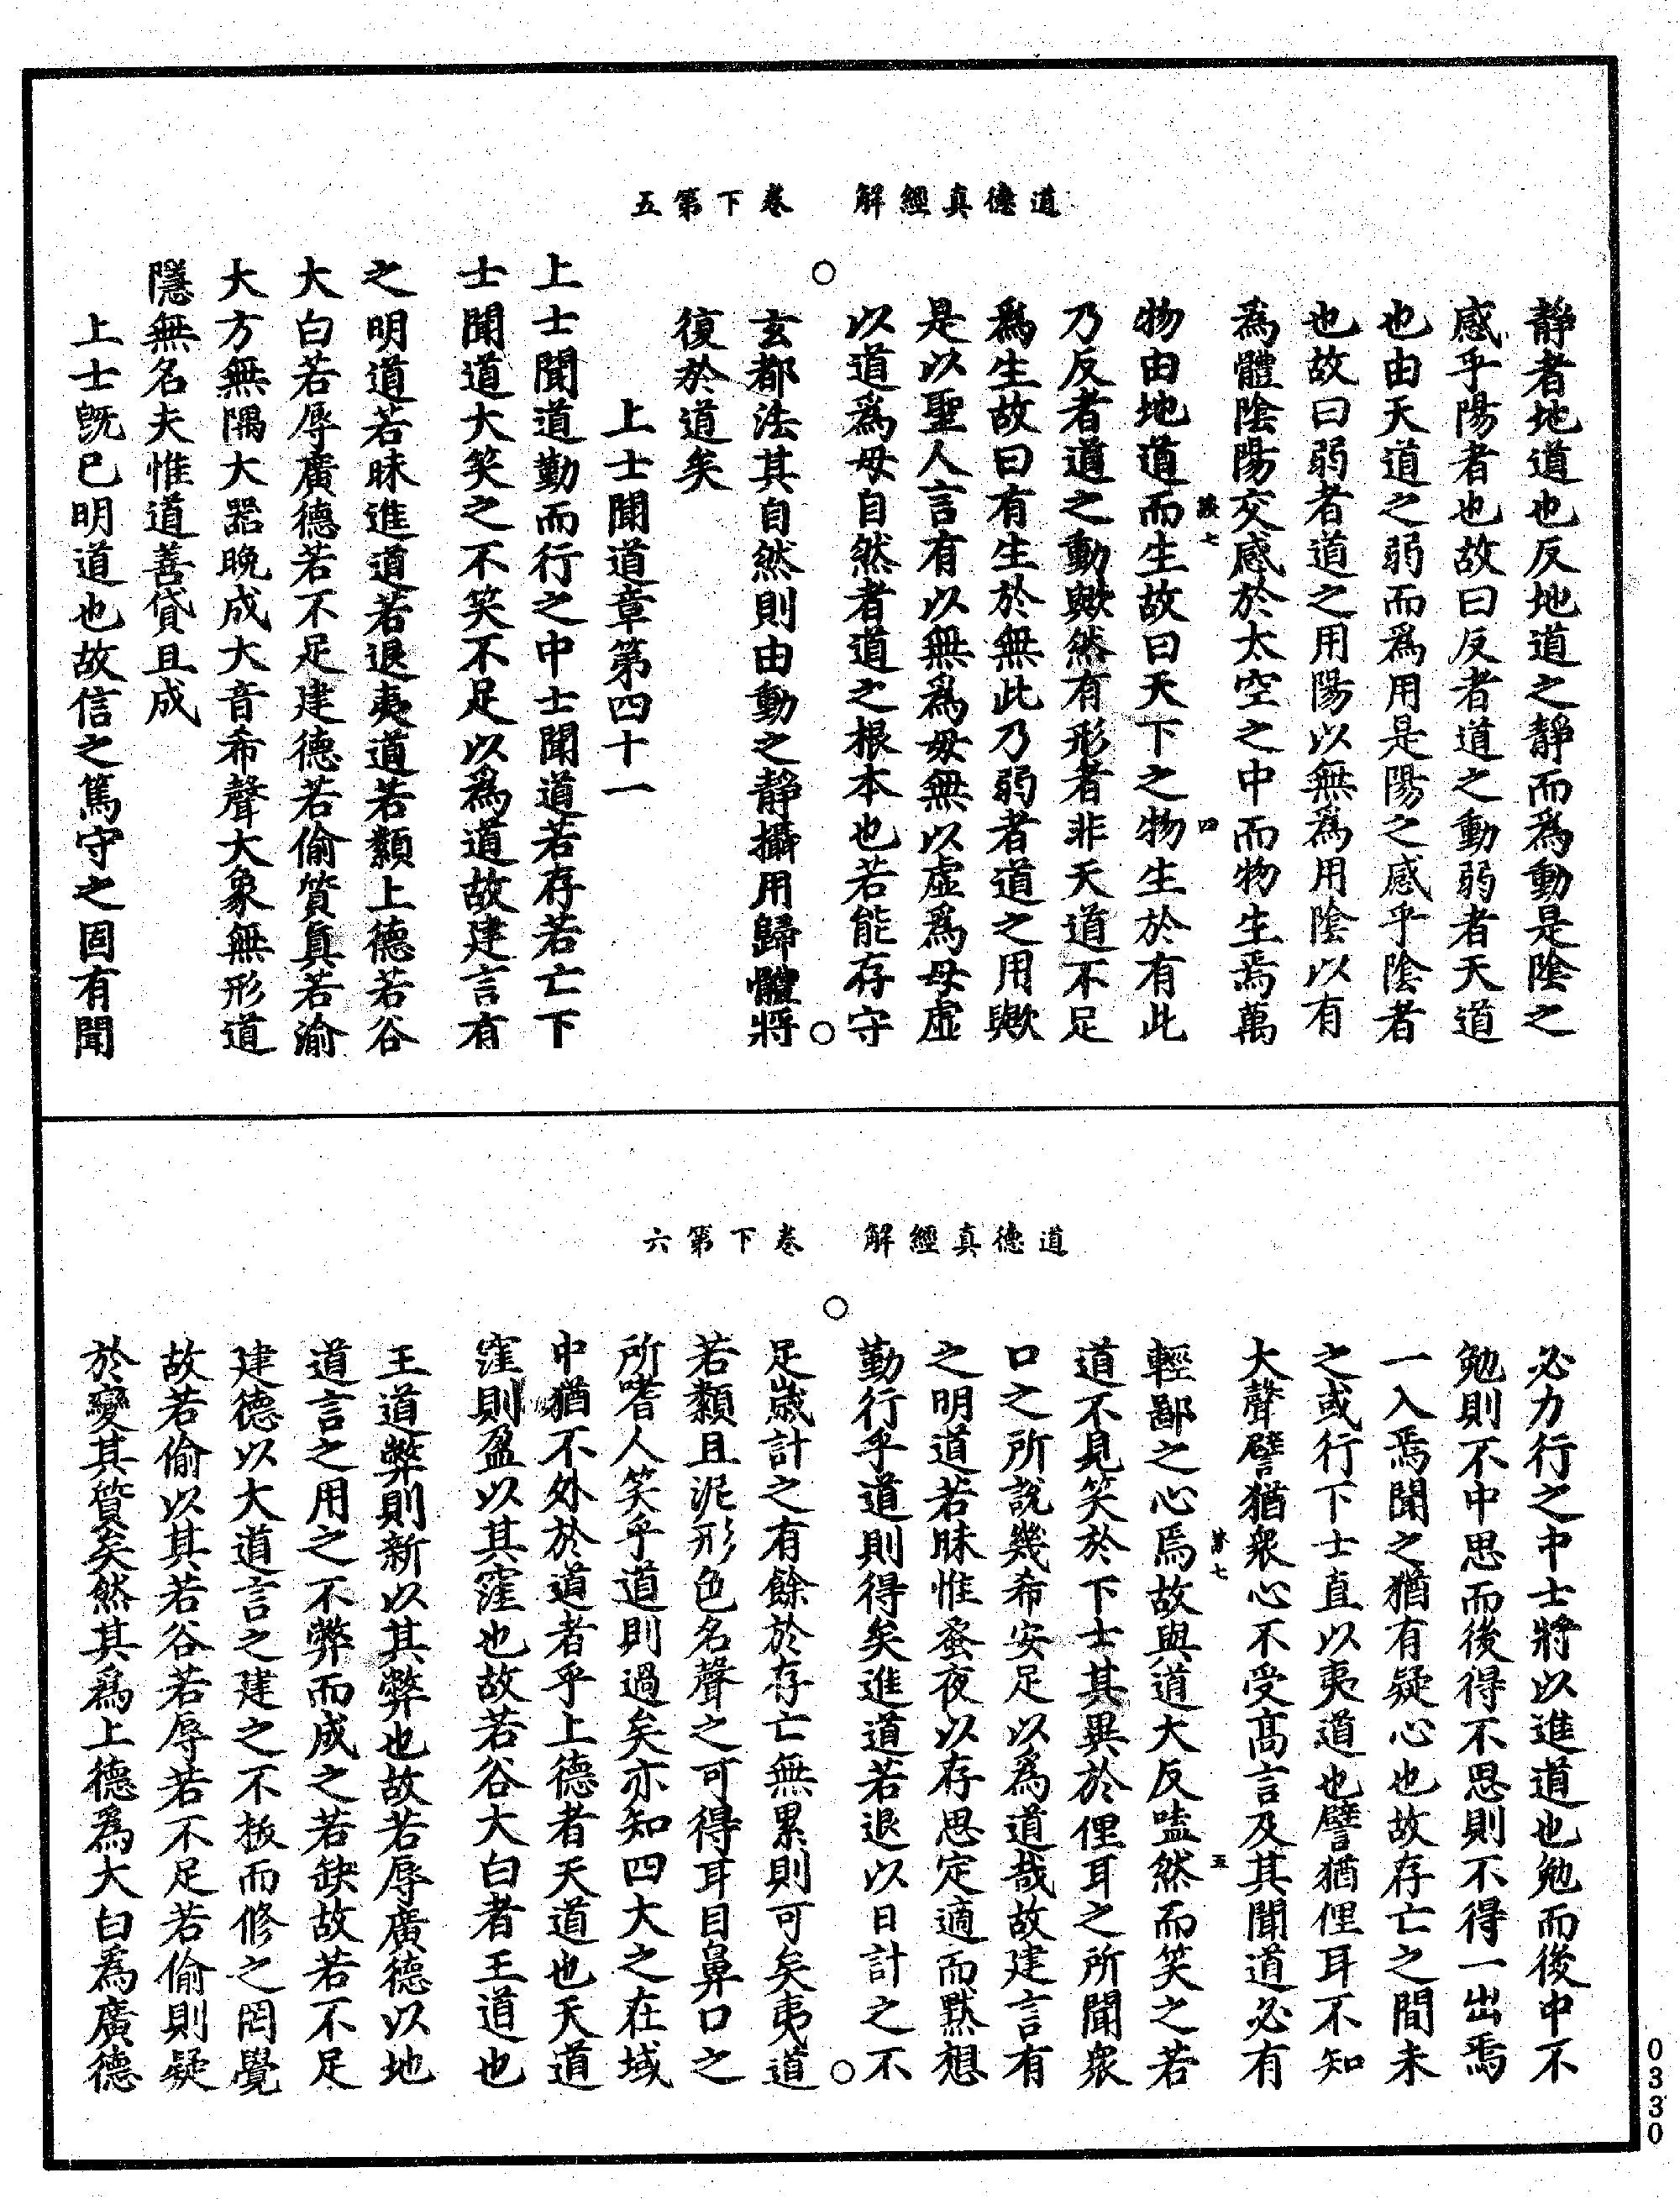 道德真經解　卷下第五
靜者地道也反地道之靜而爲動是陰之
感乎陽者也故曰反者道之動弱者天道
也由天道之弱而爲用是陽之感乎陰者
也故曰弱者道之用陽以無爲用陰以有
爲體陰陽交感於太空之中而物生焉萬
七　四
物由地道而生故曰天下之物生於有此
乃反者道之動歟然有形者非天道不足
爲生故曰有生於無此乃弱者道之用歟
是以聖人言有以無爲母無以虛爲母虛
以道爲母自然者道之根本也若能存守
○　○
玄都法其自然則由動之靜攝用歸體將
復於道矣
上士聞道章第四十一
上士聞道勤而行之中士聞道若存若亡下
士聞道大笑之不笑不足以爲道故建言有
之明道若昧進道若退夷道若纇上德若谷
大白若辱廣德若不足建德若偷質真若渝
大方無隅大器晚成大音希聲大象無形道
隱無名夫惟道善貸且成
上士旣已明道也故信之篤守之固有聞
道德真經解　卷下第六
必力行之中士將以進道也勉而後中不
勉則不中思而後得不思則不得一出焉
一入焉聞之猶有疑心也故存亡之間未
之或行下士直以夷道也譬猶俚耳不知
大聲譬猶衆心不受高言及其聞道必有
七　五
輕鄙之心焉故與道大反嗑然而笑之若
道不見笑於下士其異於俚耳之所聞衆
口之所說幾希安足以爲道哉故建言有
之明道若昧惟蚤夜以存思定適而默想
勤行乎道則得矣進道若退以日計之不
○　○
足歲計之有餘於存亡無累則可矣夷道
若纇且泥形色名聲之可得耳目鼻口之
所嗜人笑乎道則過矣亦知四大之在域
中猶不外於道者乎上德者天道也天道
窪則盈以其窪也故若谷大白者王道也
王道弊則新以其弊也故若辱廣德以地
道言之用之不弊而成之若缺故若不足
建德以大道言之建之不拔而修之罔覺
故若偷以其若谷若辱若不足若偷則疑
於變其質矣然其爲上德爲大白爲廣德
0330